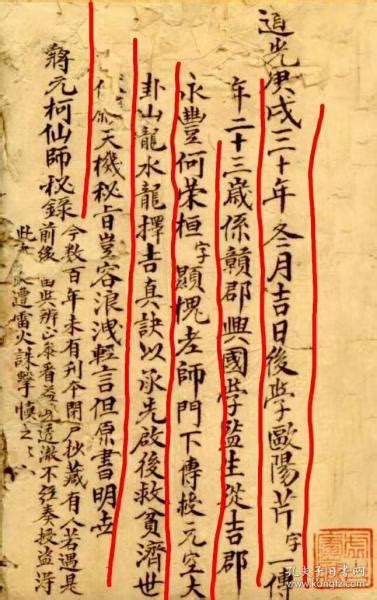 道光庚戌三十年冬二月吉日後學歐陽芹字一傅
年二十三歲係贛郡興國學監生從吉郡
永豐何荣桓字顯槐老師門下傳授元空大
卦山龍水龍擇吉真訣以承先啟後救貧濟世
天機秘旨豈容浪洩輕言但原書明告
蔣元柯仙師秘錄
今数百年未有刊今閉戸抄藏有人若遇是
前後
辨正泰看 透澈不强奏授盜浔
此 遭雷火誅擊慎之
孔夫子旧书网